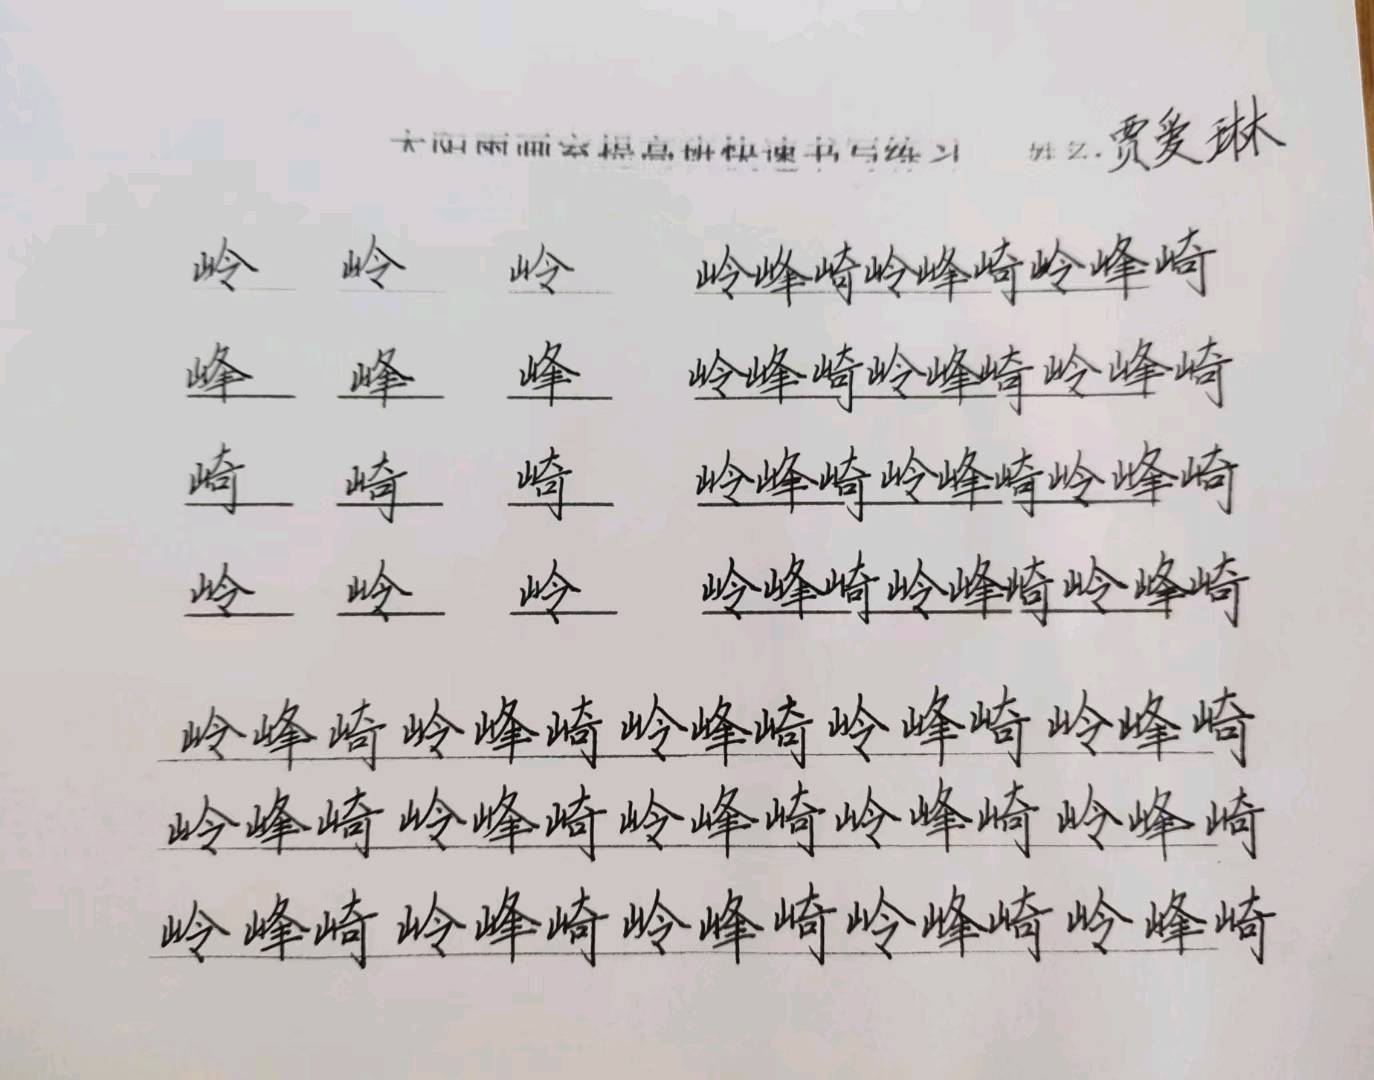 太阳雨画室提高班快速书写练习 姓名:贾爱琳
岭 岭 岭 岭峰崎岭峰崎岭峰崎
峰 峰 峰 岭峰崎岭峰崎岭峰崎
崎 崎 崎 岭峰崎岭峰崎岭峰崎
岭 岭 岭 岭峰崎岭峰崎岭峰崎
岭峰崎岭峰崎岭峰崎岭峰崎岭峰崎
岭峰崎岭峰崎岭峰崎岭峰崎岭峰崎
岭峰崎岭峰崎岭峰崎岭峰崎岭峰崎